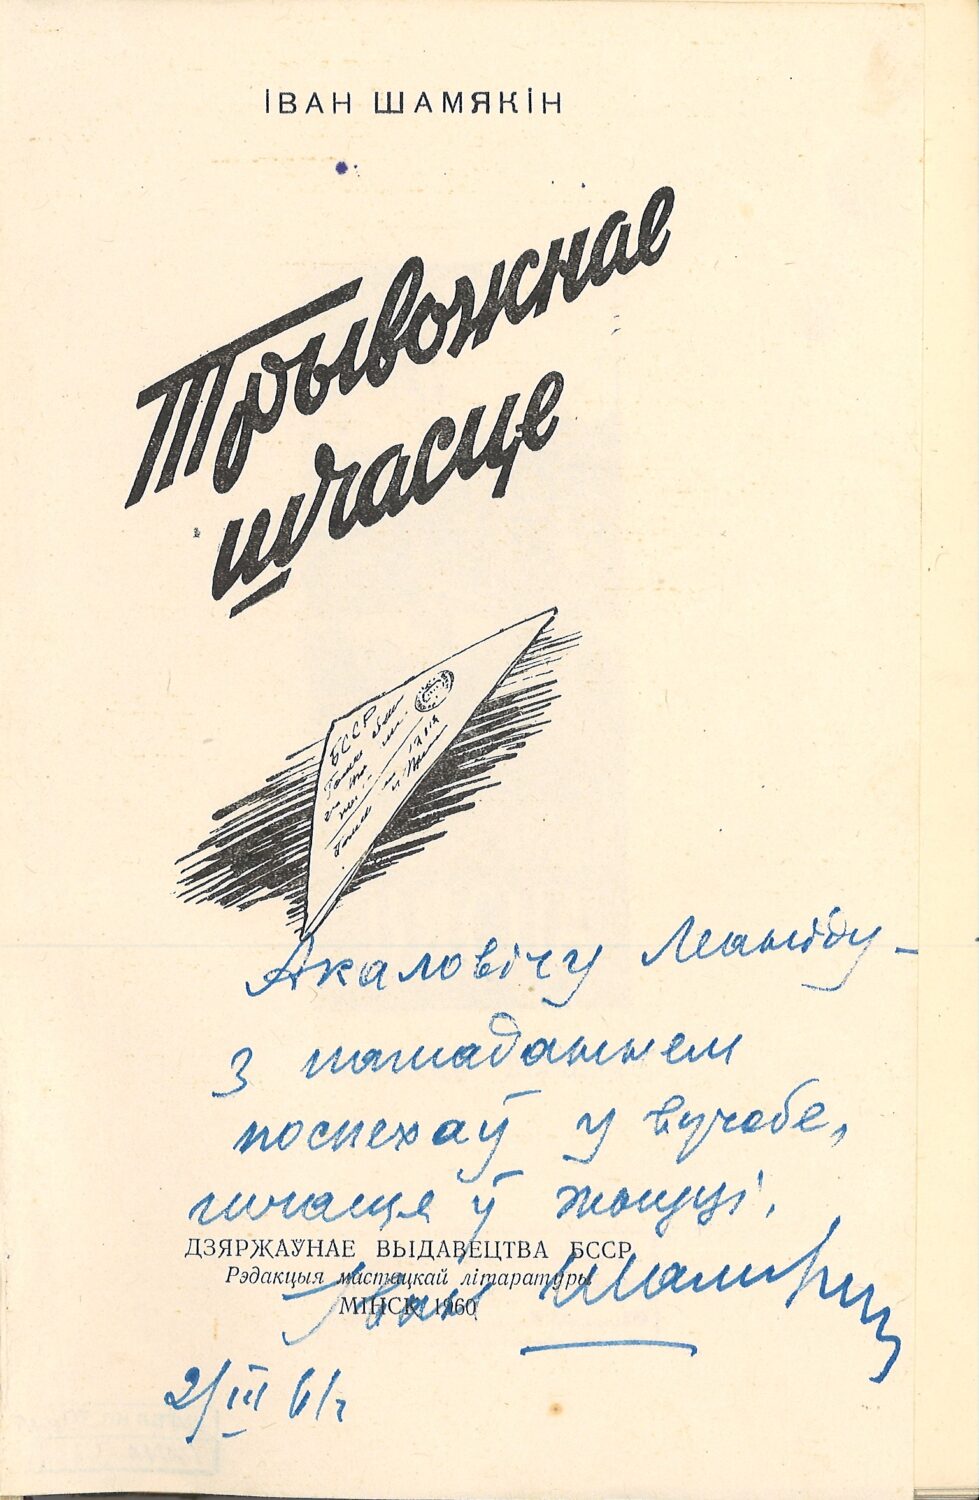 ІВАН ШАМЯКІН
Трывожнае
шчасце
БССР
Акаловічу Леаніду –
з пажаданнем
поспехаў у вучобе,
шчасця ў жыцці.
ДЗЯРЖАЎНАЕ ВЫДАВЕЦТВА БССР
Рэдакцыя мастацкай літаратуры
МІНСК 1960
Іван Шамякін
2/III 61 г